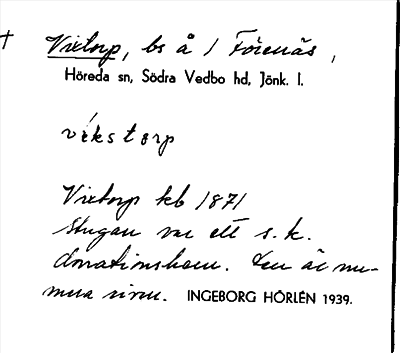 † Vixtorp, bs å 1 Förenäs,
Höreda sn, Södra Vedbo hd, Jönk. l.
vìkstorp
Vixtorp kb 1871
Stugan var ett s.k.
donationshem. Den är nu-
mera riven. INGEBORG HÖRLÉN 1939.